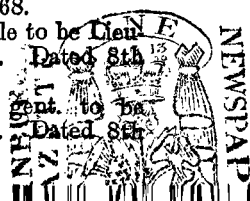 68.
le to be Lieu-
. Dated 8th
gent, to be
. Dated 8th
NE
NEWSPAP